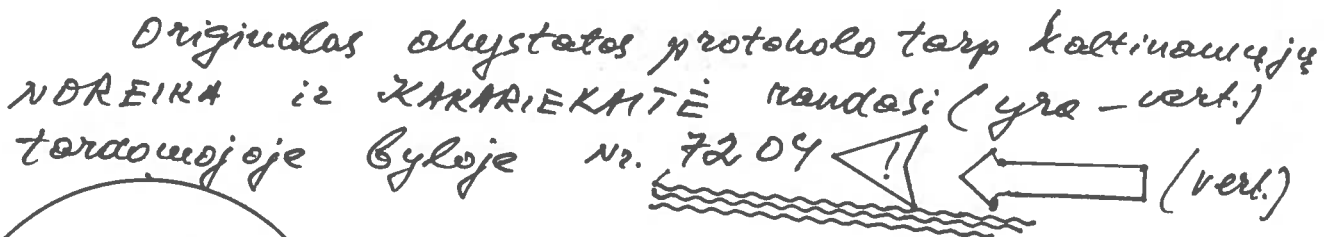 Originalas akystatos protokolo tarp kaltinamųjų
NOREIKA ir KAKARIEKAITĖ randasi (yra – vert.)
tardomojoje byloje Nr. 7204 ! (vert.)